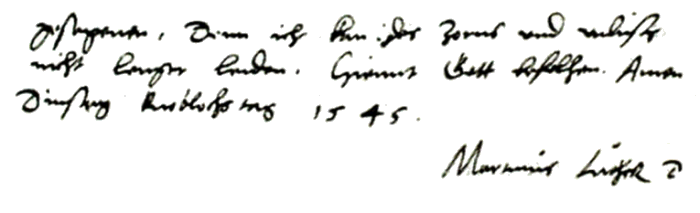 gesegenen, Denn ich kan des zorns und unlusts
nicht lenger leiden. Hiemit Gott befolhen. Amen
Dinstag Knoblochs tag 1545.
Martinus Luther D